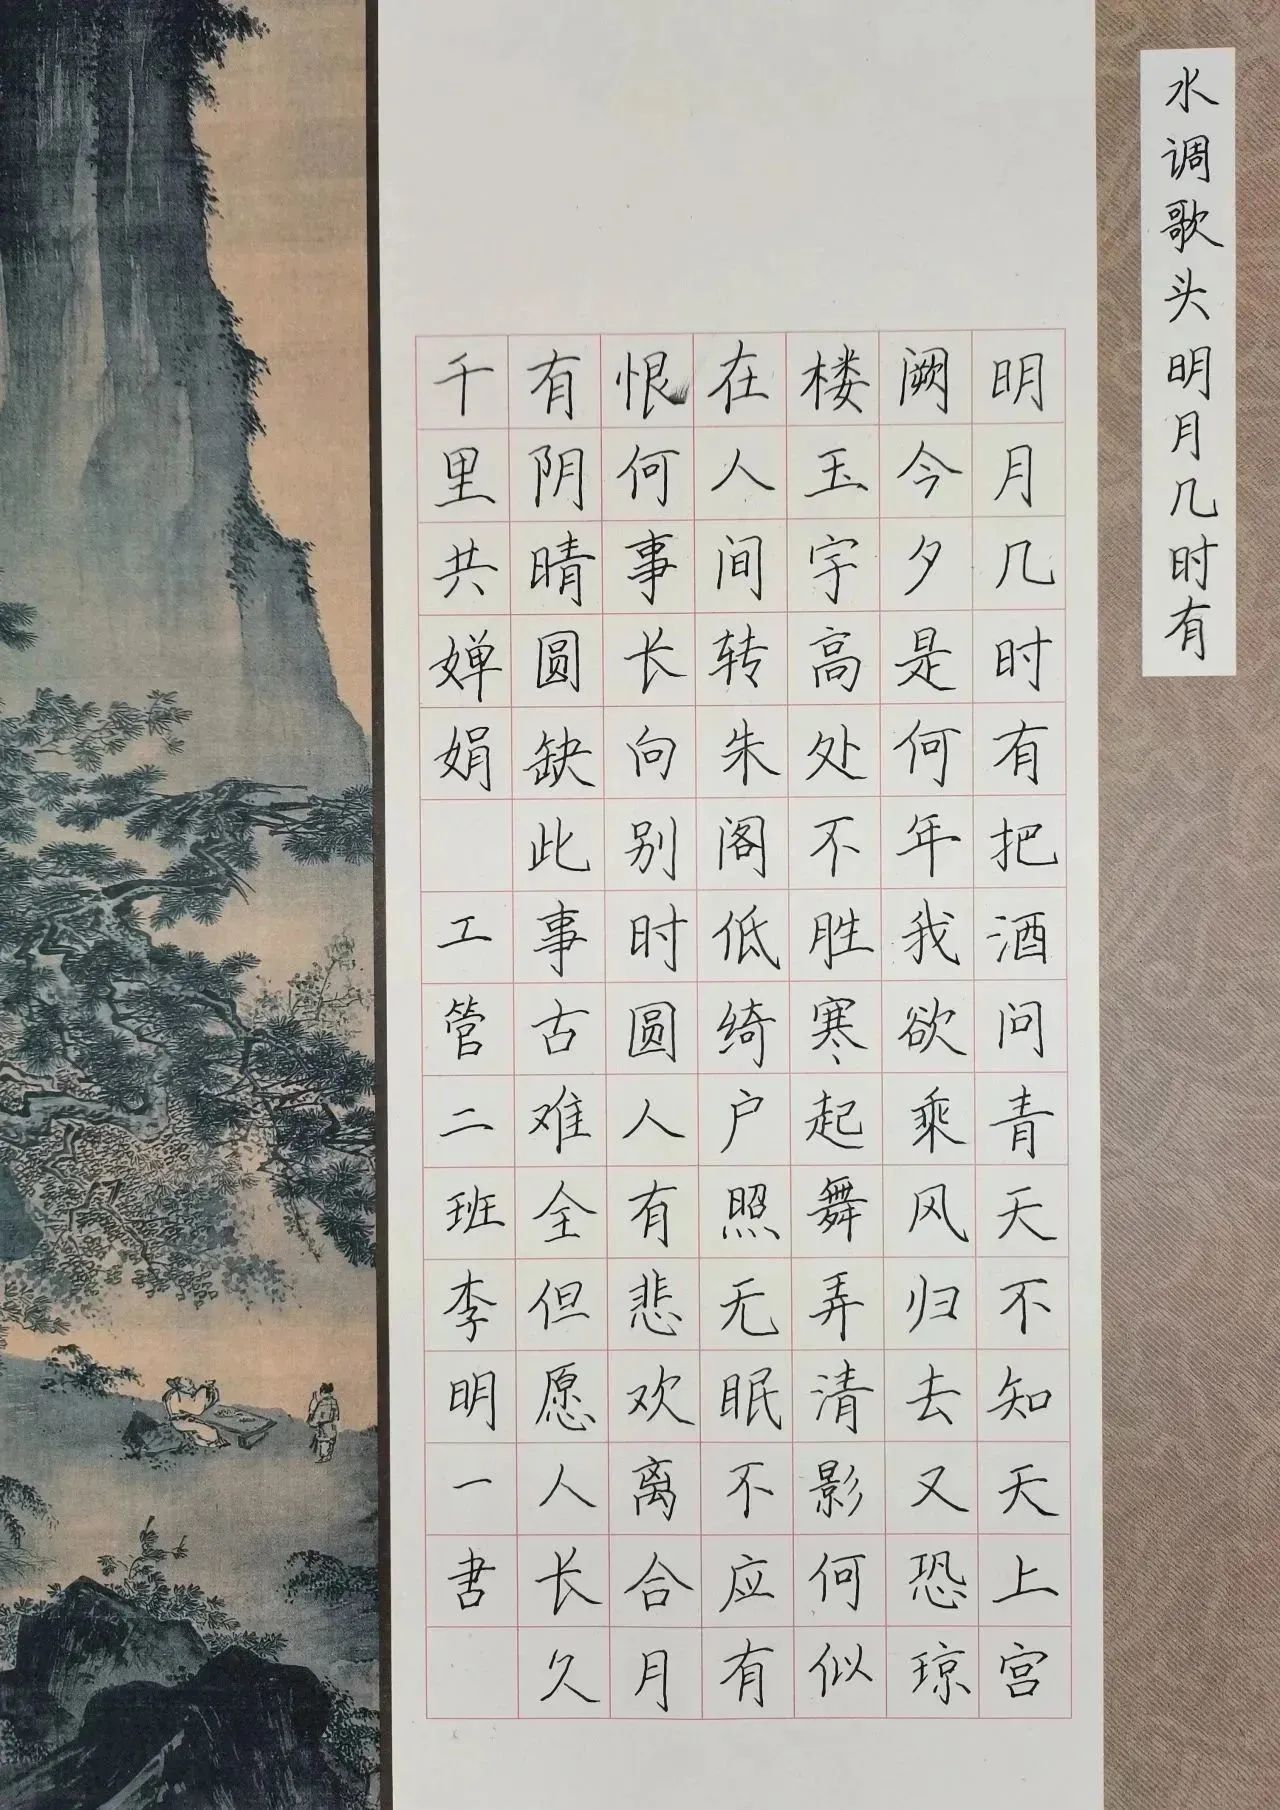 水调歌头明月几时有
明月几时有把酒问青天不知天上宫
阙今夕是何年我欲乘风归去又恐琼
楼玉宇高处不胜寒起舞弄清影何似
在人间转朱阁低绮户照无眠不应有
恨何事长向别时圆人有悲欢离合月
有阴晴圆缺此事古难全但愿人长久
千里共婵娟 工管二班李明一书